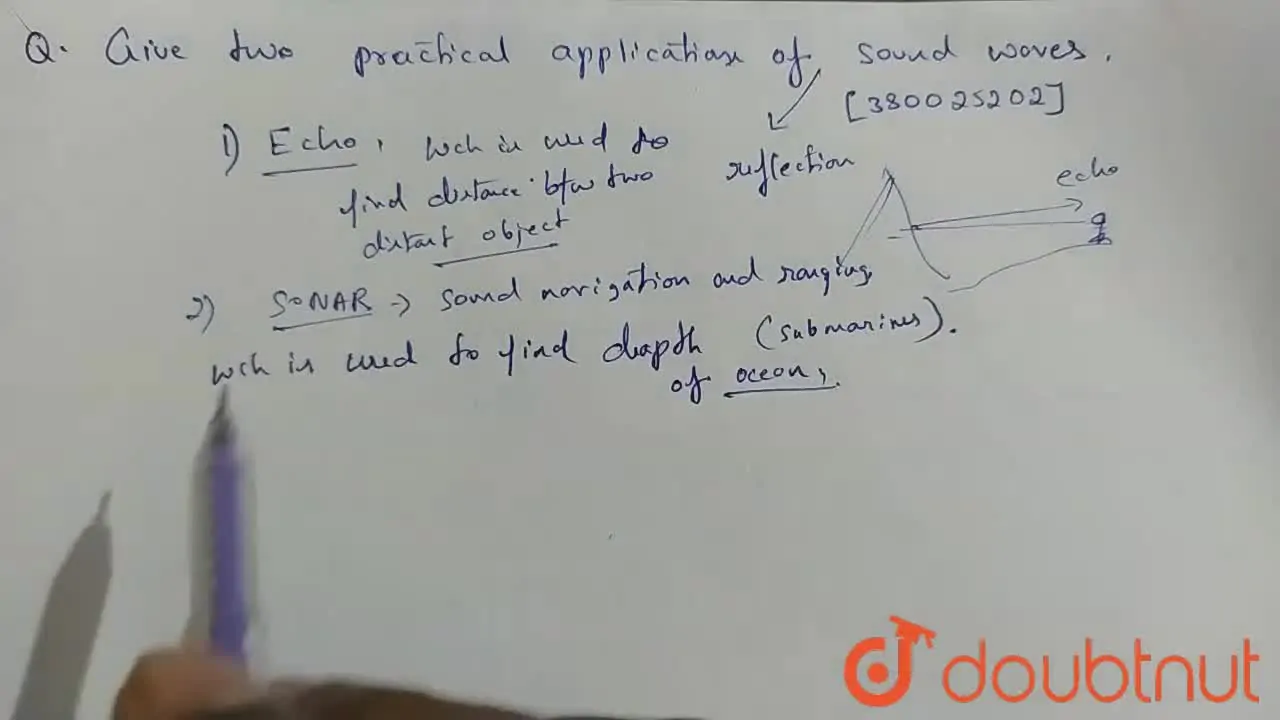 Q. Give two practical application of sound waves.
[380025202]
reflection
1) Echo, wch is used to
find distance b/w two
distant object
echo
2) SONAR → sound navigation and ranging,
wch is used to find depth (submarines).
of ocean,.
doubtnut